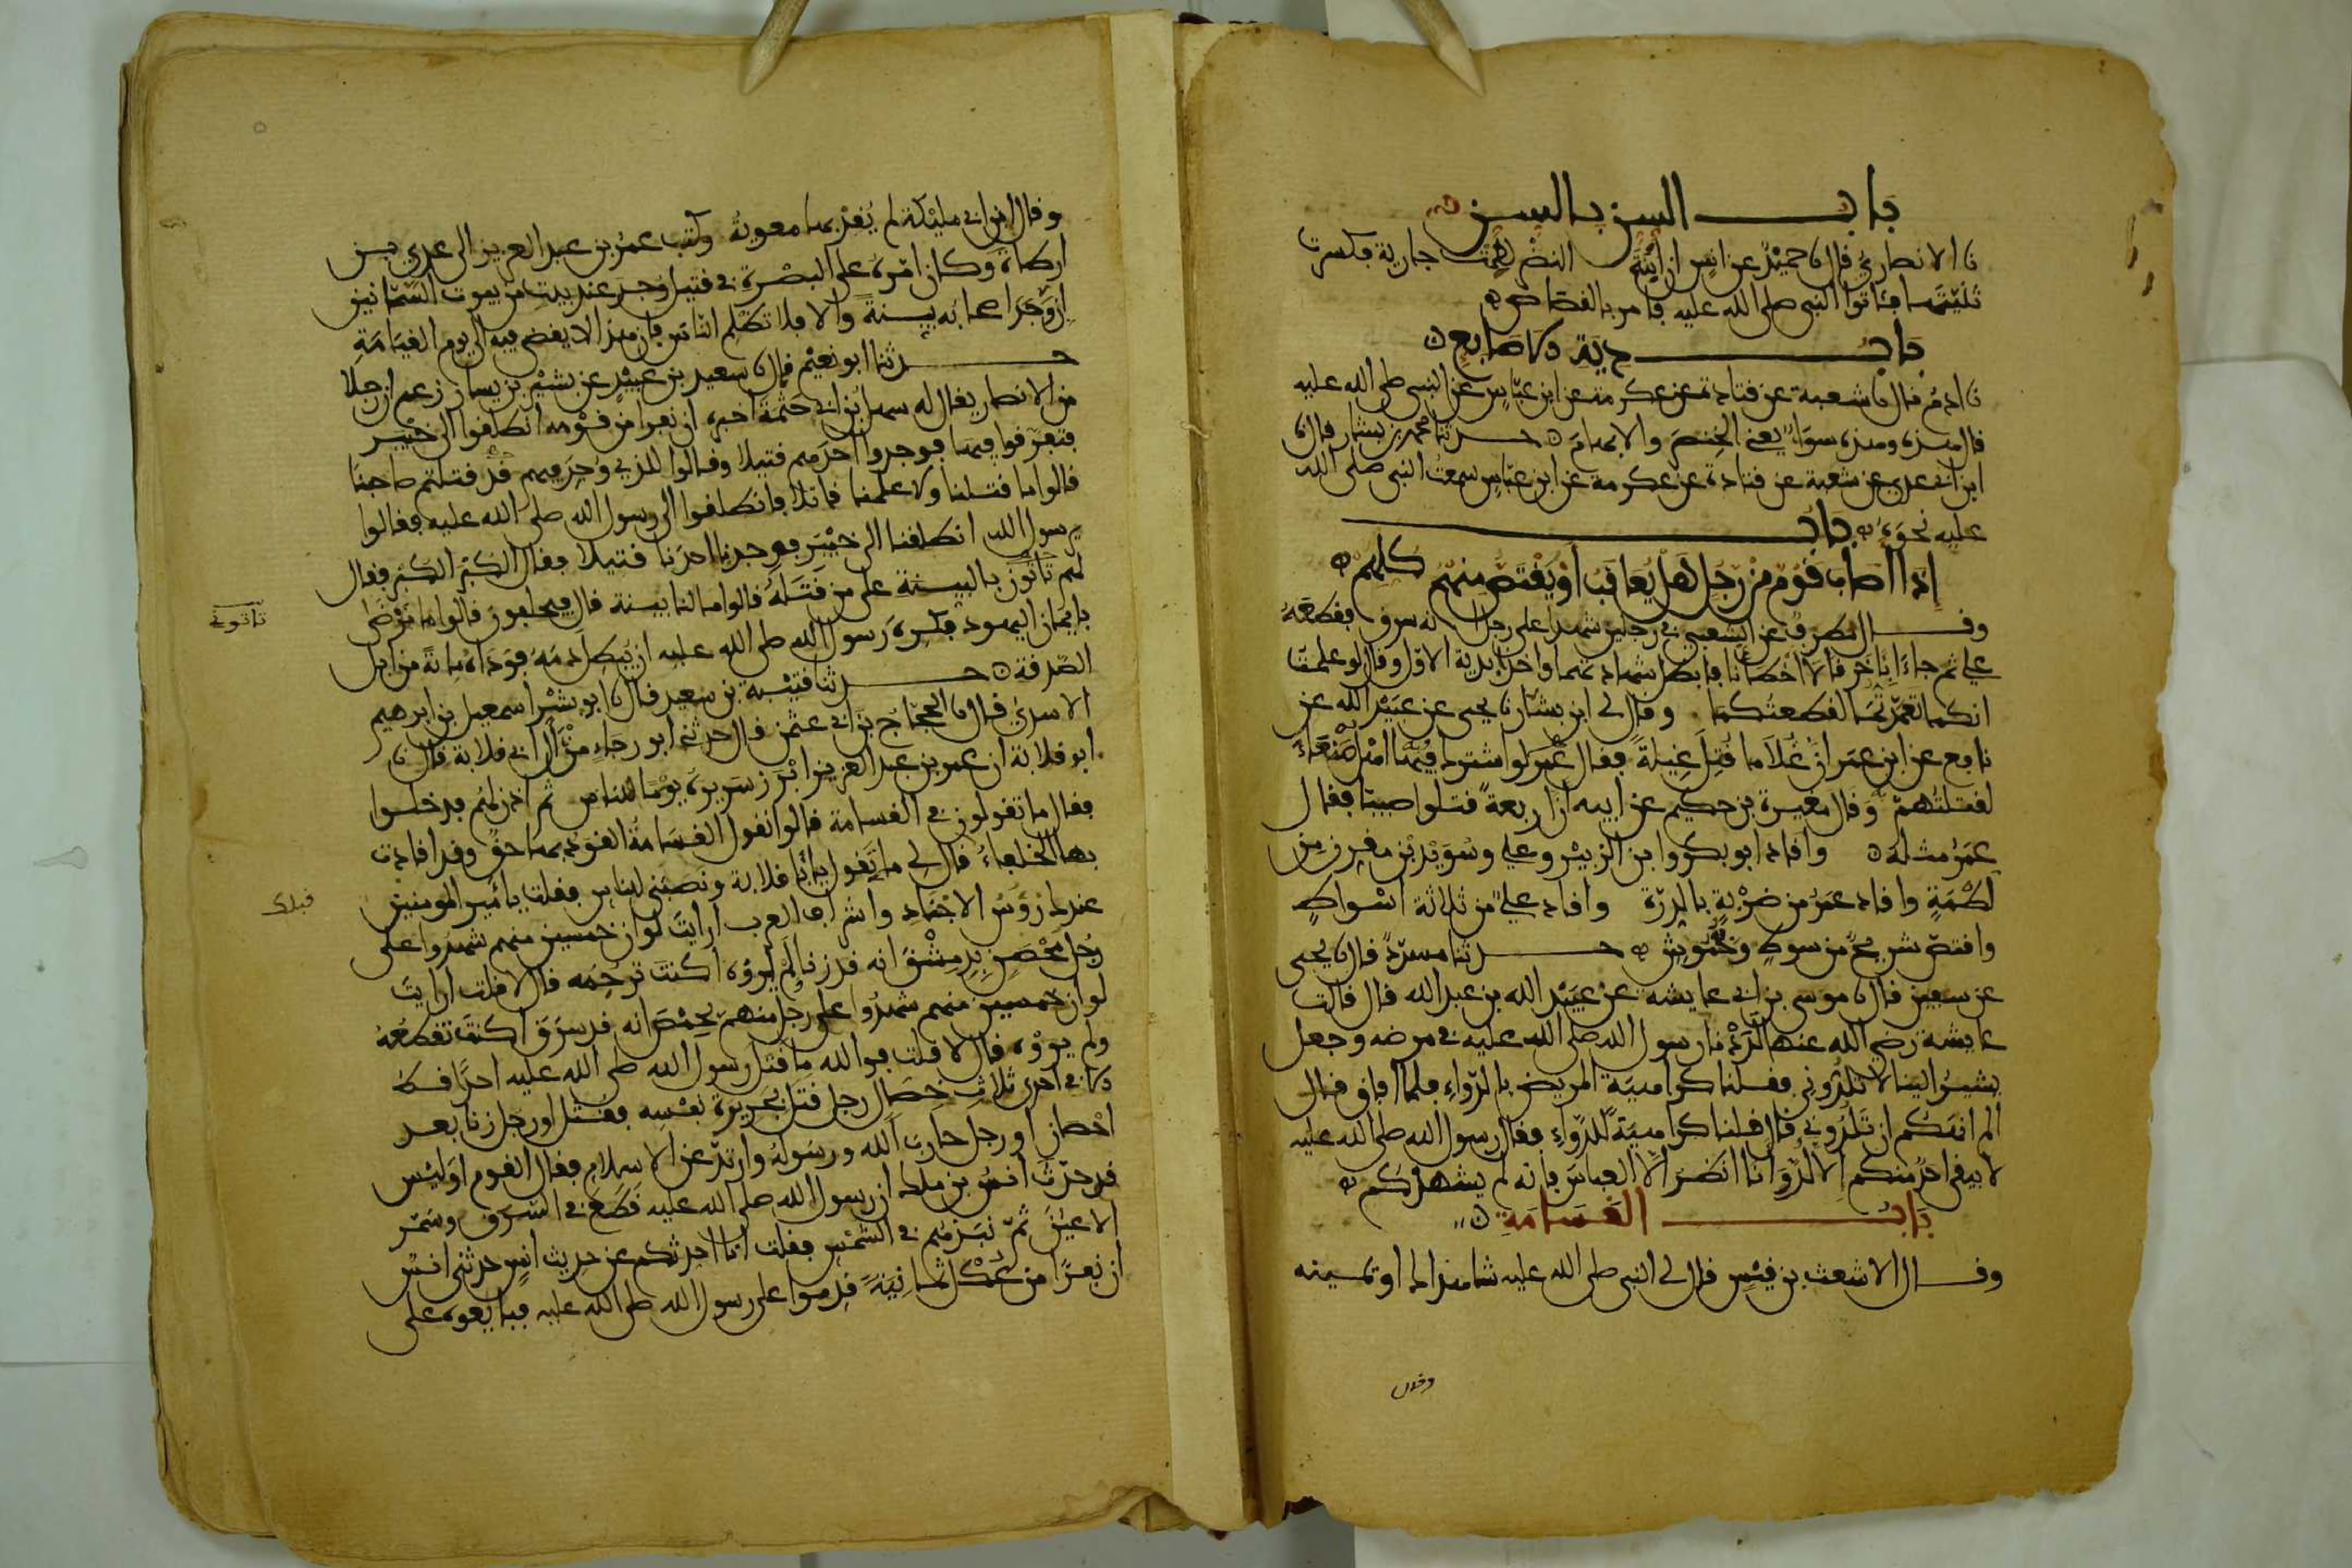 باب السن بالسن
نا الانصاري قال نا حميد عن انس ان ابنة النضر لطمت جارية فكسرت
ثنيتها فاتوا النبي صلى الله عليه فامر بالقصاص
باب دية الاصابع
نا ادم قال نا شعبة عن قتادة عن عكرمة عن ابن عباس عن النبي صلى الله عليه
قال هذه وهذه سواء يعني الخنصر والابهام حدثنا محمد بن بشار قال نا
ابن ابي عدي عن شعبة عن قتادة عن عكرمة عن ابن عباس سمعت النبي صلى الله
عليه نحوه باب
إذا اصاب قوم من رجل هل يعاقب أو يقتص منهم كلهم
وقال مطرف عن الشعبي في رجلين شهدا على رجل انه سرق فقطعه
علي ثم جاءا باخر قالا اخطانا فابطل شهادتهما واخذا بدية الاول وقال لو علمت
انكما تعمدتما لقطعتكما وقال لي ابن بشار نا يحيى عن عبيد الله عن
نافع عن ابن عمر ان غلاما قتل غيلة فقال عمر لو اشترك فيها اهل صنعاء
لقتلتهم وقال مغيرة بن حكيم عن ابيه ان اربعة قتلوا صبيا فقال
عمر مثله واقاد ابو بكر وابن الزبير وعلي وسويد بن مقرن من
لطمة واقاد عمر من ضربة بالدرة واقاد علي من ثلاثة اسواط
واقتص شريح من سوط وخموش حدثنا مسدد قال نا يحيى
عن سفين قال نا موسى بن ابي عايشة عن عبيد الله بن عبد الله قال قالت
عايشة رضي الله عنها لددنا رسول الله صلى الله عليه في مرضه وجعل
يشير الينا لا تلدوني فقلنا كراهية المريض بالدواء فلما افاق قال
الم انهكم ان تلدوني قال قلنا كراهية للدواء فقال رسول الله صلى الله عليه
لا يبقى احد منكم الا لد وانا انظر الا العباس فانه لم يشهدكم
باب القسامة
وقال الاشعث بن قيس قال لي النبي صلى الله عليه شاهداك او يمينه
وقال
وقال ابن ابي مليكة لم يقد بها معوية وكتب عمر بن عبد العزيز الى عدي بن
ارطاة وكان امره على البصرة في قتيل وجد عند بيت من بيوت السمانين
ان وجد اصحابه بينة والا فلا تظلم الناس فان هذا لا يقضى فيه الى يوم القيامة
حدثنا ابو نعيم قال نا سعيد بن عبيد عن بشير بن يسار زعم ان رجلا
من الانصار يقال له سهل بن ابي حثمة اخبره ان نفرا من قومه انطلقوا الى خيبر
فتفرقوا فيها فوجدوا احدهم قتيلا وقالوا للذي وجد فيهم قد قتلتم صاحبنا
قالوا ما قتلنا ولا علمنا قاتلا فانطلقوا الى رسول الله صلى الله عليه فقالوا
يرسول الله انطلقنا الى خيبر فوجدنا احدنا قتيلا فقال الكبر الكبر فقال
لهم تاتون بالبينة على من قتله قالوا ما لنا بينة قال فيحلفون قالوا ما نرضى
تاتوني
بايمان اليهود فكره رسول الله صلى الله عليه ان يبطل دمه فوداه مائة من ابل
الصدقة حدثنا قتيبة بن سعيد قال نا ابو بشر اسمعيل بن ابرهيم
الاسدي قال نا الحجاج بن ابي عثمن قال حدثني ابو رجاء من آل ابي قلابة قال نا
ابو قلابة ان عمر بن عبد العزيز ابرز سريره يوما للناس ثم اذن لهم فدخلوا
فقال ما تقولون في القسامة قالوا نقول القسامة القود بها حق وقد اقادت
بها الخلفاء قال لي ما تقول يا أبا قلابة ونصبني للناس فقلت يا أمير المومنين
عندك رؤس الاجناد واشراف العرب ارايت لو ان خمسين منهم شهدوا على
رجل محصن بدمشق انه قد زنا لم يروه اكنت ترجمه قال لا قلت ارايت
لو ان خمسين منهم شهدوا على رجل منهم بحمص انه قد سرق اكنت تقطعه
ولم يروه قال لا قلت فوالله ما قتل رسول الله صلى الله عليه احدا قط
الا في احدى ثلاث خصال رجل قتل بجريرة نفسه فقتل او رجل زنا بعد
احصان او رجل حارب الله ورسوله وارتد عن الاسلام فقال القوم اوليس
قد حدث انس بن ملك ان رسول الله صلى الله عليه قطع في السرق وسمر
الاعين ثم نبذهم في الشمس فقلت انا احدثكم عن حديث انس حدثني انس
ان نفرا من عكل ثمانية قدموا على رسول الله صلى الله عليه فبايعوه على